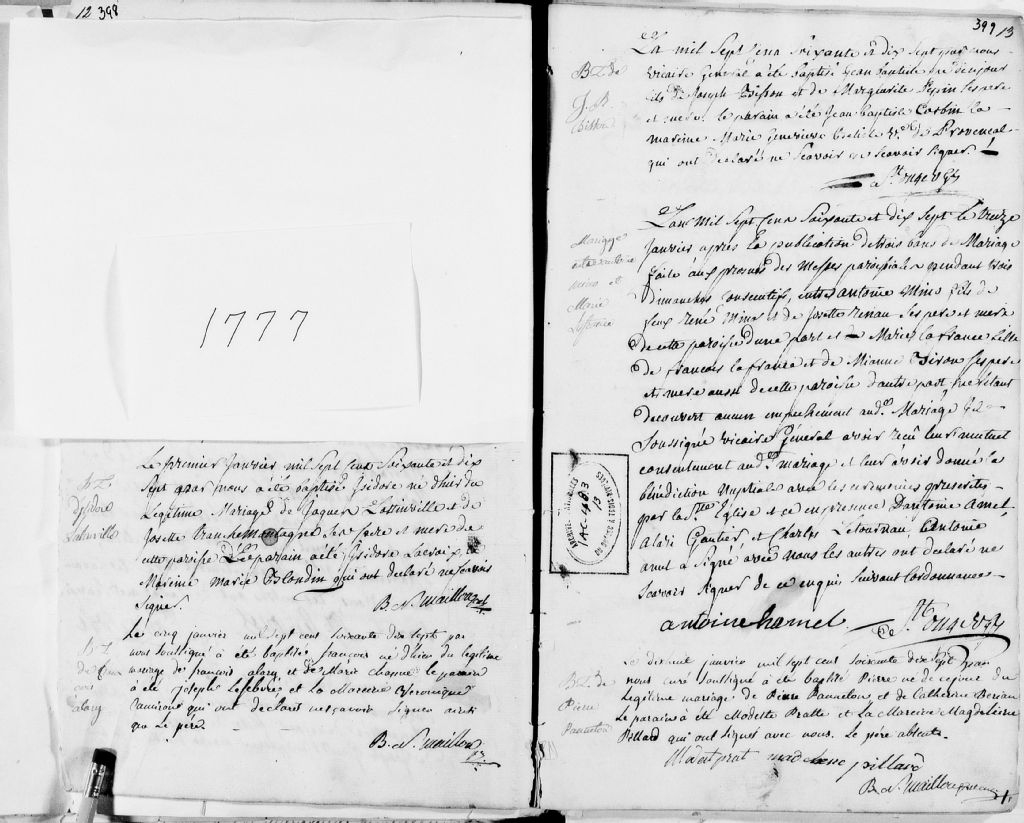 12 398
1777
Bt.
Isidore
Latinville
Le premier Janvier mil Sept Cens Soixante et dix
Sept par nous a été baptisé Isidore né d'hier du
Légitime Mariage de Jaques Latinville et de
Josette tranchemontagne Ses pere et mere de
cette paroisse Le parain a été Isidore Lacroix La
Mareine marie Blondin qui ont declaré ne savoir
Signer.
B. N. Maillou ptr
Le cinq janvier mil sept cens soixante dix sept par
nous soussigné a été baptisé francois né d'hier du legitime
mariage de francois alary et de Marie le parain
a été joseph Lefebvre et La Mareine Veronique
qui ont declaré ne sçavoir signer ainsi
que Le père.
B. N. Maillou ptr
399 13
Bt. de
J. B.
Bisson
L'an mil Sept Cens Soixante et dix Sept par nous
vicaire General a été baptisé Jean baptiste né de ce jour
fils de Joseph Bisson et de Marguerite Pepin Ses pere
et mere le parain a été Jean baptiste Corbin la
mareine Marie Genevieve de Provencal
qui ont declaré ne Scavoir Signer.
Mariage
Antoine
mino et
Marie
Lafrance
L'an Mil Sept Cens Soixante et dix Sept le treize
Janvier après la publication de trois bans de Mariage
faite aux prosnes des Messes paroissiales pendant trois
dimanches consecutifs, entre antoine Mino fils de
feux René Mino et de Josette Renau Ses pere et mere
de cette paroisse d'une part et de Marie la france fille
de francois la france et de Mianne Giron Ses pere
et mere aussi de cette paroisse d'autre part, ne s'étant
decouvert aucun empechement aud. Mariage Je
Soussigné vicaire Général avoir recu leur mutuel
consentement aud. mariage et leur avoir donné la
bénédiction Nuptiale avec les ceremonies prescrites
par la Ste Eglise et ce en presence D'antoine Amel
Alexi Gautier et Charles Letournau, L'antoine
amel a Signé avec nous les autres ont declaré ne
Scavoir Signer de ce enquis Suivant L'ordonnance
antoine hamel
Bt. de
Pierre
Panneton
Le dix neuf janvier mil sept cens soixante dix Sept par
nous curé soussigné a été baptisé Pierre né de ce jour du
legitime mariage de Pierre Panneton et de Catherine
le parain a été Modeste Pratte et La Mareine Magdeleine
Pillard qui ont signés avec nous. Le père absent.
Modest prat madelene pillard
B. N. Maillou
AC-1483
13